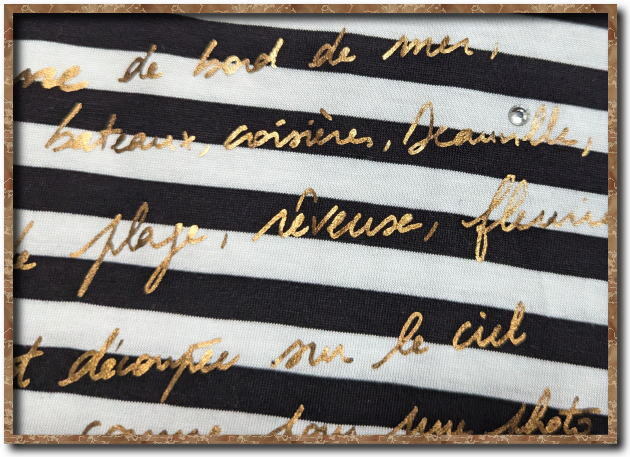 de bord de mer,
bateaux, croisières, Deauville,
plage, rêveuse, fleurie
découpée sur le ciel
comme sur une photo